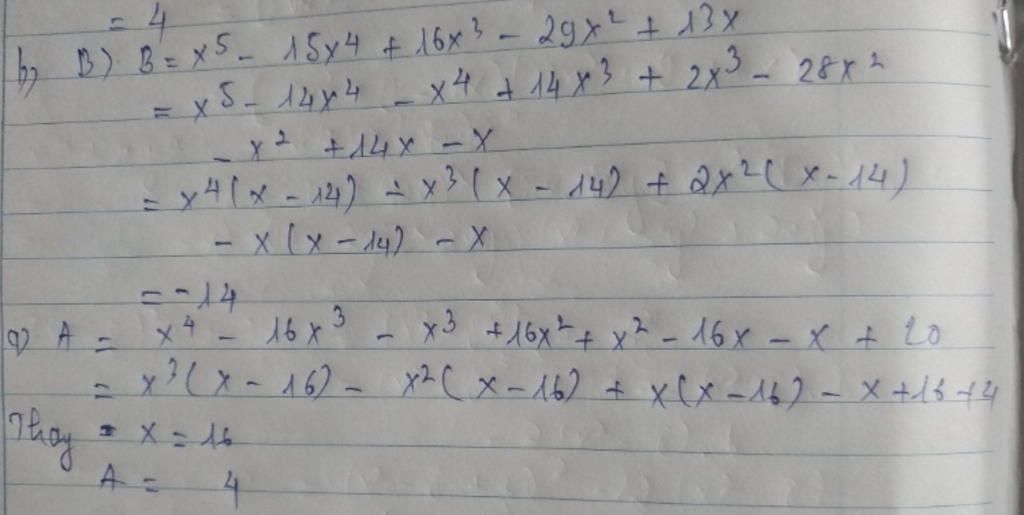 = 4
b, B) B = x⁵ - 15x⁴ + 16x³ - 29x² + 13x
= x⁵ - 14x⁴ - x⁴ + 14x³ + 2x³ - 28x²
- x² + 14x - x
= x⁴(x - 14) - x³(x - 14) + 2x²(x - 14)
- x(x - 14) - x
= -14
a) A = x⁴ - 16x³ - x³ + 16x² + x² - 16x - x + 20
= x³(x - 16) - x²(x - 16) + x(x - 16) - x + 16 + 4
Thay x = 16
A = 4